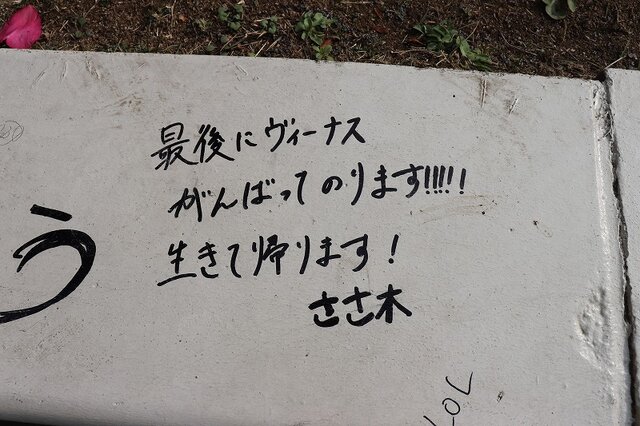 最後にヴィーナス
がんばってのります!!!!!
生きて帰ります!
ささ木
う
LOL